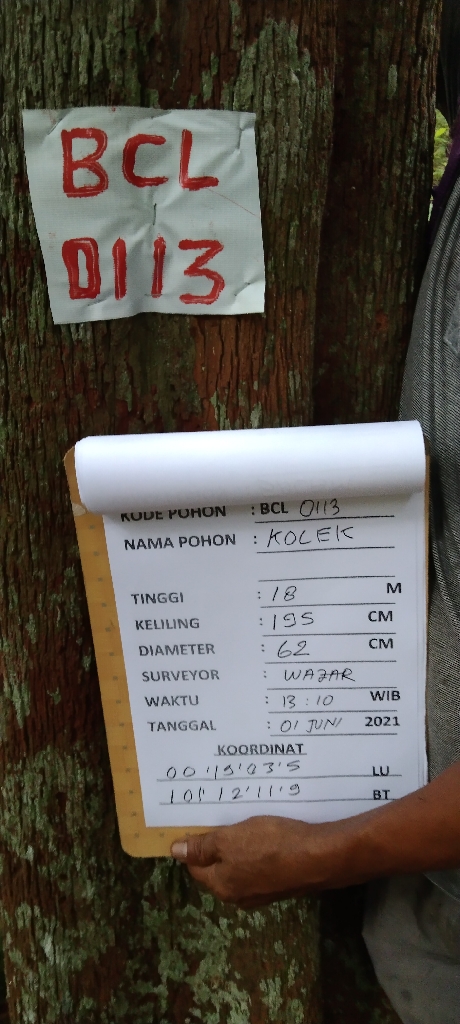 BCL
0113
KODE POHON : BCL 0113
NAMA POHON : KOLEK
TINGGI : 18 M
KELILING : 195 CM
DIAMETER : 62 CM
SURVEYOR : WAZAR
WAKTU : 13:10 WIB
TANGGAL : 01 JUNI 2021
KOORDINAT
00'19'03'5 LU
101'12'11'9 BT